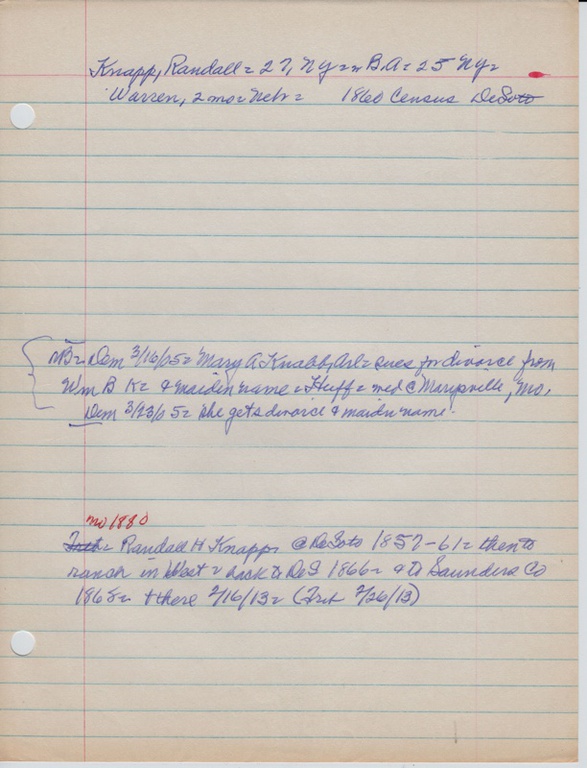 Knapp, Randall = 27, NY = = B.A = 25 NY =
Warren, 2 mo = Nebr = 1860 Census DeSoto
NB = Dem 3/16/05 = Mary A Knabb, Arl = sues for divorce from
Wm B K = & maiden name = Huff = med @ Marysville, Mo.
Dem 3/23/05 = she gets divorce & maiden name.
no 1880
= Randall H Knapp @ DeSoto 1857-61 = then to
ranch in West = back to DeS 1866 = & to Saunders Co
1868 = + there 2/16/13 = (Trib 2/26/13)